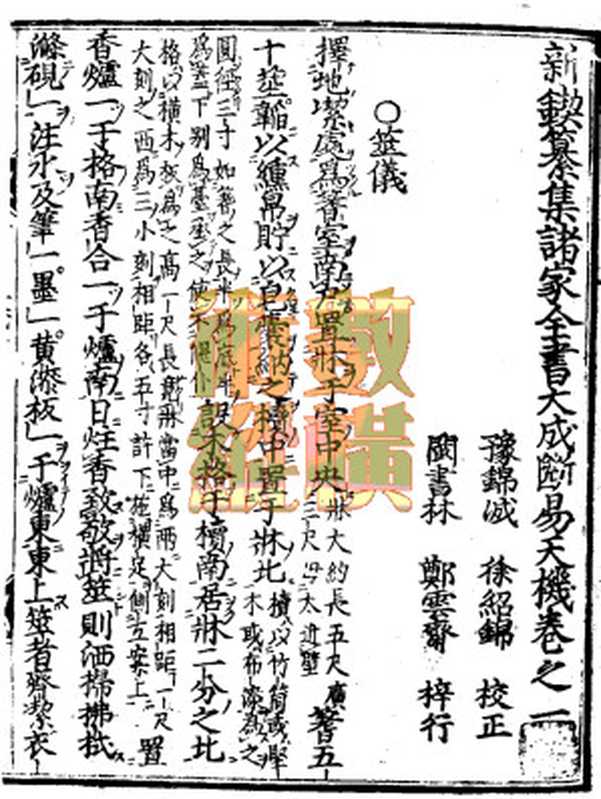 新鍥纂集諸家全書大成斷易天機卷之二
豫錦誠 徐紹錦 校正
閩書林 鄭雲齋 梓行
○筮儀
擇地潔處爲蓍室南戶置牀于室中央牀大約長五尺廣三尺毋太近壁蓍五
十莖韜以纁帛貯以皂囊納之櫝中置于牀北櫝以竹筒或堅木或布漆爲之
圓徑三寸如蓍之長半爲底半爲蓋下別爲臺函之使不偃仆設木格于櫝南居牀二分之北
格以橫木板爲之高一尺長竟牀當中爲兩大刻相距一尺大刻之西爲三小刻相距各五寸許下施橫足側立案上置
香爐一于格南香合一于爐南日炷香致敬將筮則洒掃拂拭
滌硯一注水及筆一墨一黃漆板一于爐東東上筮者齊潔衣
數
術
橫
縱